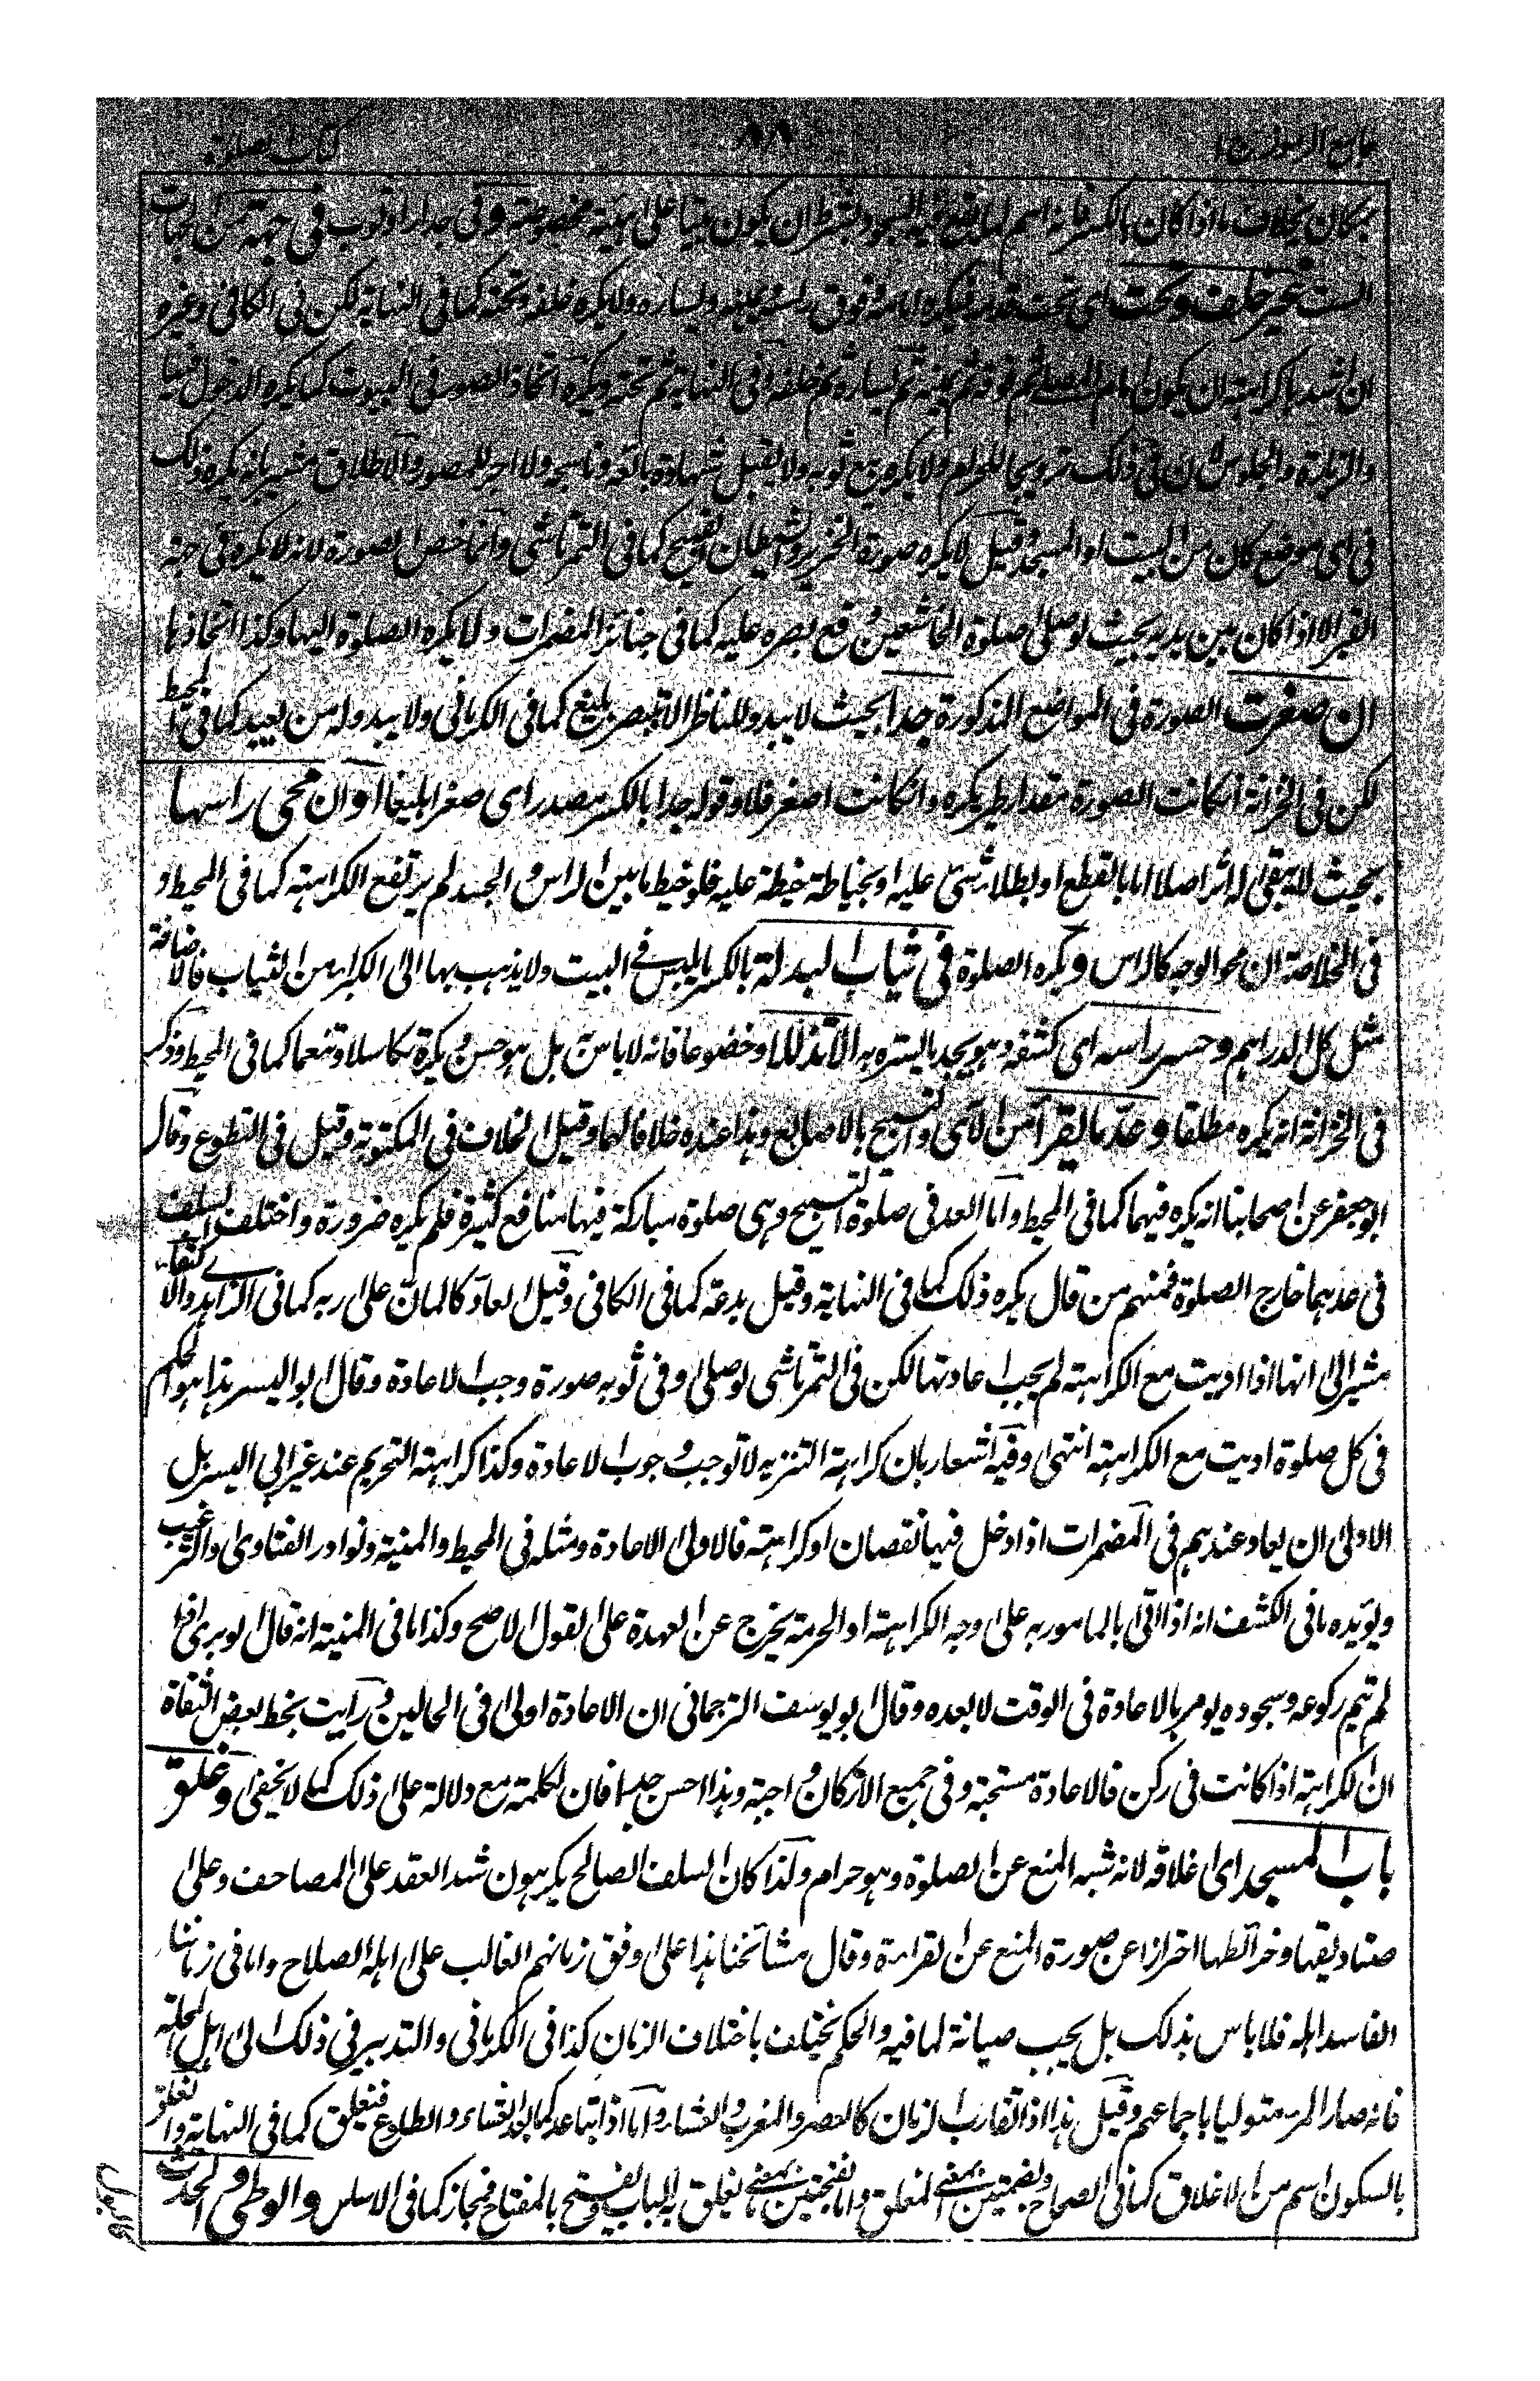 جامع الرموز ج ١ ٨٨ كتاب الصلوة
بمكان بخلاف ما اذا كان بالكسر فانه اسم لما يقع عليه السجود بشرط ان يكون مبنيا على هيئة مخصوصة و في جدار او ثوب في جهة من الجهات
الست غير خلف و تحت اى تحت قدمه فيكره امامه و فوق راسه و يمينه و يساره ولا يكره خلفه و تحته كما في النهاية لكن في الكافي و غيره
ان اشدها كراهة ان يكون امام المصلى ثم فوقه ثم يمينه ثم يساره ثم خلفه و في النهاية ثم تحته و يكره اتخاذ الصور في البيوت كما يكره الدخول فيها
والزيارة والجلوس لان في ذلك ترويجا للمواقع ولا يكره بيع ثوبه ولا يقبل شهادة بائعه و ناسجه ولا اجر للمصور والاطلاق مشير بانه يكره ذلك
في اى موضع كان من البيت او المسجد و قيل لا يكره صورة الخنزير والشيطان و لقبح كما في التمرتاشى و انما خص الصورة لانه لا يكره في جهة
القبر الا اذا كان بين يديه بحيث لو صلى صلوة الخاشعين وقع بصره عليه كما في جنائز المضمرات ولا يكره الصلوة اليها و كذا اتخاذها
ان صغرت الصورة في المواضع المذكورة جدا بحيث لا يبدو للناظر الا بتبصر بليغ كما في الكرماني ولا يبدو له من بعيد كما في المحيط
لكن في الخزانة ان كانت الصورة مقدار طير يكره و ان كانت اصغر فلا و قوله جدا بالكسر مصدر اى صغرا بليغا او ان محى راسها
بحيث لا يبقى له اثر اصلا اما بالقطع او بطلاء شئ عليه او بخياطة خيطة عليه فلو خيط ما بين الراس و الجسد لم يرتفع الكراهة كما في المحيط و
في الخلاصة ان محو الوجه كالراس و يكره الصلوة في ثياب البذلة بالكسر ما يلبس في البيت ولا يذهب بها الى الكبراء من الثياب فالاضافة
مثل كل الدراهم و حسر راسه اى كشفه و هو يجد ما يستره به الا تذللا او خضوعا فانه لا باس به بل هو حسن و يكره تكاسلا و تنعما كما في المحيط و ذكر
في الخزانة انه يكره مطلقا و عد ما يقرأ من الآي و التسبيح بالاصابع و هذا عنده خلافا لهما و قيل الخلاف في المكتوبة و قيل في التطوع و قال
ابو جعفر عن اصحابنا انه يكره فيهما كما في المحيط و اما العد في صلوة التسبيح و هى صلوة مباركة فيها منافع كثيرة فلم يكره ضرورة و اختلف السلف
في عدهما خارج الصلوة فمنهم من قال يكره ذلك كما في النهاية و قيل بدعة كما في الكافي و قيل العاد كالمان على ربه كما في الزاهدى والاكتفاء
مشير الى انها اذا اديت مع الكراهة لم يجب اعادتها لكن في التمرتاشى لو صلى و في ثوبه صورة وجب الاعادة و قال ابو اليسر هذا هو الحكم
في كل صلوة اديت مع الكراهة انتهى و فيه اشعار بان كراهة التنزيه لا توجب وجوب الاعادة و كذا كراهة التحريم عند غير ابى اليسر بل
الاولى ان يعاد عندهم في المضمرات اذا دخل فيها نقصان او كراهة فالاولى الاعادة و مثله في المحيط و المنية و نوادر الفتاوى و الترغيب
و يؤيده ما في الكشف انه اذا اتى بالمامور به على وجه الكراهة او الحرمة يخرج عن العهدة على القول الاصح و كذا ما في المنية انه قال الوبرى اذا
لم تيم ركوعه و سجوده يومر بالاعادة في الوقت لا بعده و قال ابو يوسف الترجمانى ان الاعادة اولى في الحالين و رايت بخط بعض الثقاة
ان الكراهة اذا كانت في ركن فالاعادة مستحبة و في جميع الاركان واجبة و هذا احسن جدا فان لكلمة مع دلالة على ذلك كما لا يخفى و غلق
باب المسجد اى اغلاقه لانه شبه المنع عن الصلوة و هو حرام و لذا كان السلف الصالح يكرهون شد العقد على المصاحف و على
صناديقها و خرائطها احترازا عن صورة المنع عن القراءة و قال مشائخنا هذا على وفق زمانهم الغالب على اهله الصلاح و اما في زماننا
الفاسد اهله فلا باس بذلك بل يجب صيانة لما فيه و الحكم يختلف باختلاف الزمان كذا في الكرماني و التدبير في ذلك الى اهل المحلة
فانه صار المرء متوليا باجماعهم و قيل هذا اذا تقارب الزمان كالعصر و المغرب و العشاء و اما اذا تباعد كما بعد العشاء و الطلوع فيغلق كما في النهاية و الغلق
بالسكون اسم من الاغلاق كما في الصحاح و بضمتين بمعنى المغلق و اما بفتحتين بمعنى ما يغلق به الباب و يفتح بالمفتاح فمجاز كما في الاساس و الوطى و الحدث